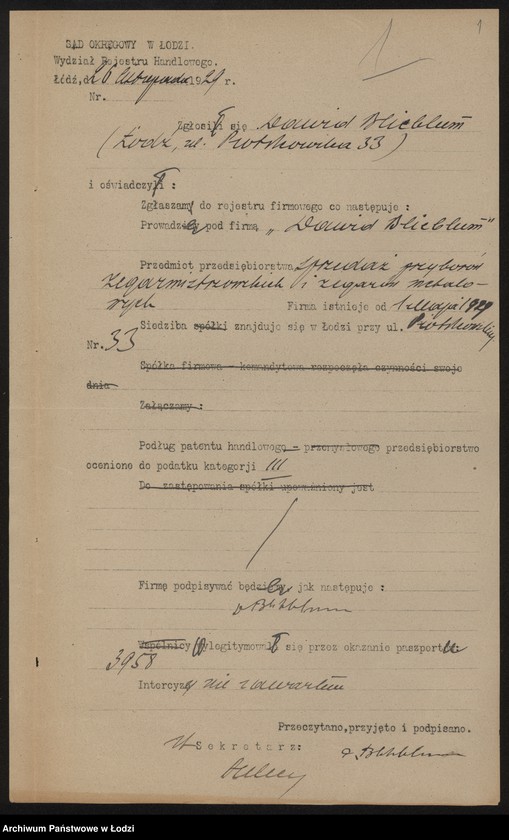 1
SĄD OKRĘGOWY W ŁODZI.
Wydział Rejestru Handlowego.
Łódź, d. 26 listopada 1929 r.
Nr.
Zgłosił się Dawid Blieblum
(Łódź, ul. Piotrkowska 33)
i oświadczył :
Zgłaszam do rejestru firmowego co następuje :
Prowadzę pod firmą „Dawid Blieblum"
Przedmiot przedsiębiorstwa sprzedaż przyborów
zegarmistrzowskich i zegarów metalo-
wych Firma istnieje od 1 Maja 1929
Siedziba spółki znajduje się w Łodzi przy ul. Piotrkowskiej
Nr. 33
Spółka firmowa - komandytowa rozpoczęła czynności swoje
dnia
Załączamy :
Podług patentu handlowego - przemysłowego przedsiębiorstwo
ocenione do podatku kategorji III
Do zastępowania spółki upoważniony jest
Firmę podpisywać będzie jak następuje :
Wspólnicy wylegitymował się przez okazanie paszportu:
3958
Intercyzy nie zawarłem
Przeczytano, przyjęto i podpisano.
Sekretarz:
Archiwum Państwowe w Łodzi